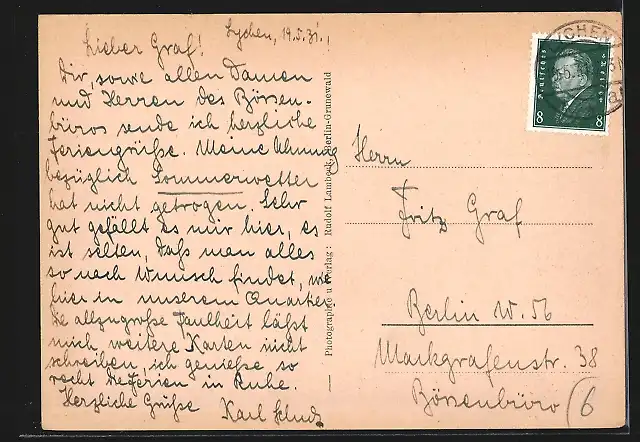 Lychen, 19.5.31.,
Lieber Graf!
Dir, sowie allen Damen
und Herren des Börsen-
büros sende ich herzliche
Feriengrüße. Meine Ahnung
bezüglich Sommerwetter
hat nicht getrogen. Sehr
gut gefällt es mir hier, es
ist selten, daß man alles
so nach Wunsch findet, wie
hier in unserem Quartier.
Die allzugroße Faulheit läßt
mich weitere Karten nicht
schreiben, ich genieße so
recht die Ferien in Ruhe.
Herzliche Grüße
Karl
Photographie u. Verlag: Rudolf Lambeck, Berlin-Grunewald
Deutsches Reich
8 8
LYCHEN
Herrn
Fritz Graf
Berlin W. 56
Markgrafenstr. 38
Börsenbüro
6